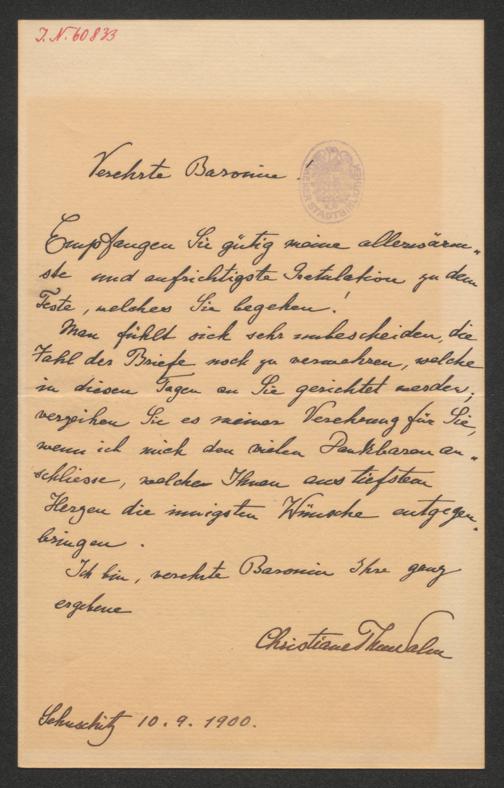 J. N. 60833
Verehrte Baronin!
Empfangen Sie gütig meine allerwärm„
ste und aufrichtigste Gratulation zu dem
Feste, welches Sie begehen!
Man fühlt sich sehr unbescheiden, die
Zahl der Briefe noch zu vermehren, welche
in diesen Tagen an Sie gerichtet werden;
verzeihen Sie es meiner Verehrung für Sie,
wenn ich mich den vielen Dankbaren an„
schliesse, welche Ihnen aus tiefstem
Herzen die innigsten Wünsche entgegen„
bringen.
Ich bin, verehrte Baronin Ihre ganz
ergebene
Christiane Thun Salm
10. 9. 1900.